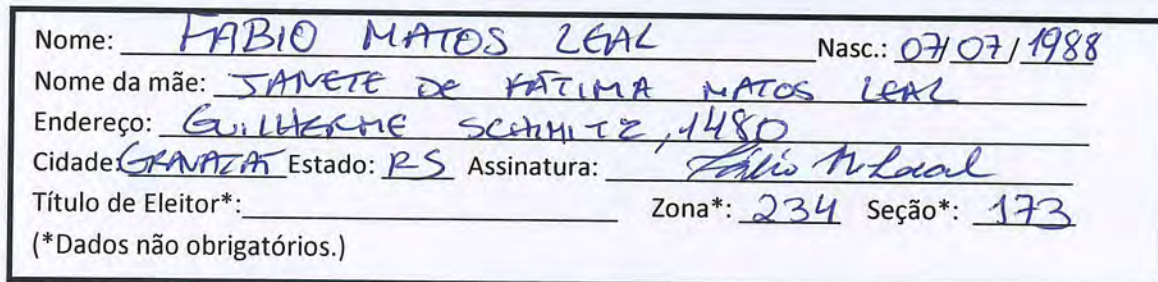 Nome: FABIO MATOS LEAL Nasc.: 07/07/1988
Nome da mãe: JANETE DE FÁTIMA MATOS LEAL
Endereço: GUILHERME SCHMITZ, 1480
Cidade: GRAVATAÍ Estado: RS Assinatura: Fábio M Leal
Título de Eleitor*: Zona*: 234 Seção*: 173
(*Dados não obrigatórios.)